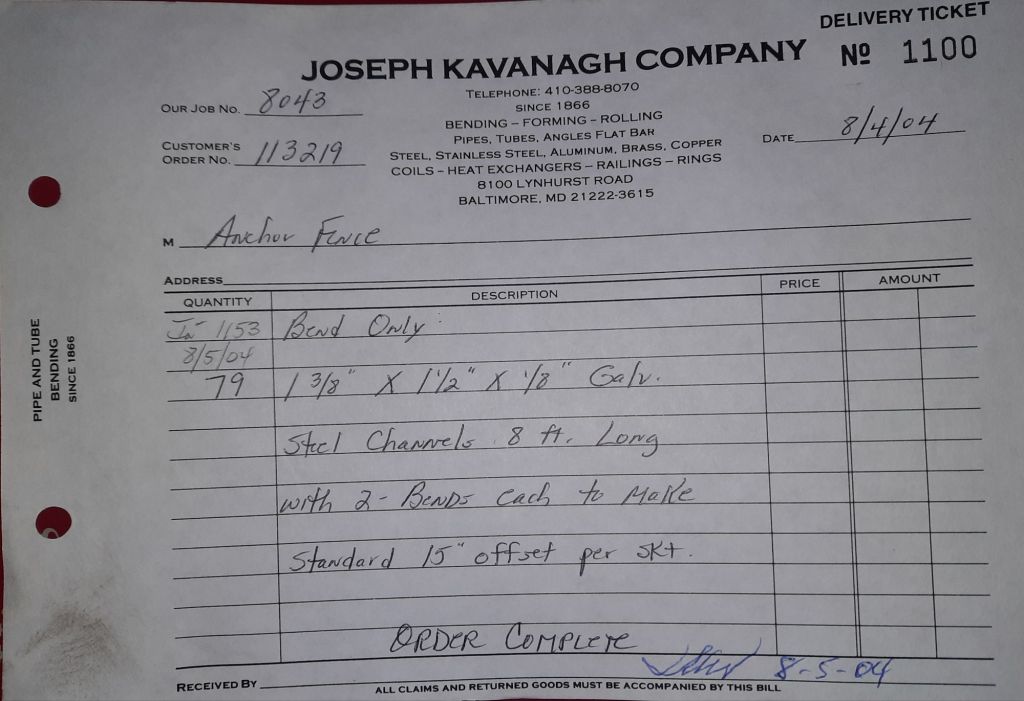 DELIVERY TICKET
JOSEPH KAVANAGH COMPANY
Nº 1100
TELEPHONE: 410-388-8070
SINCE 1866
BENDING – FORMING – ROLLING
PIPES, TUBES, ANGLES FLAT BAR
STEEL, STAINLESS STEEL, ALUMINUM, BRASS, COPPER
COILS – HEAT EXCHANGERS – RAILINGS – RINGS
8100 LYNHURST ROAD
BALTIMORE, MD 21222-3615
OUR JOB NO. 8043
CUSTOMER'S
ORDER NO. 113219
DATE 8/4/04
M Anchor Fence
ADDRESS
QUANTITY DESCRIPTION PRICE AMOUNT
1153 Bend Only:
8/5/04
79 1 3/8" X 1 1/2" X 1/8" Galv.
Steel Channels 8 ft. Long
with 2- Bends each to Make
Standard 15" offset per skt.
ORDER COMPLETE
8-5-04
RECEIVED BY
ALL CLAIMS AND RETURNED GOODS MUST BE ACCOMPANIED BY THIS BILL
PIPE AND TUBE
BENDING
SINCE 1866